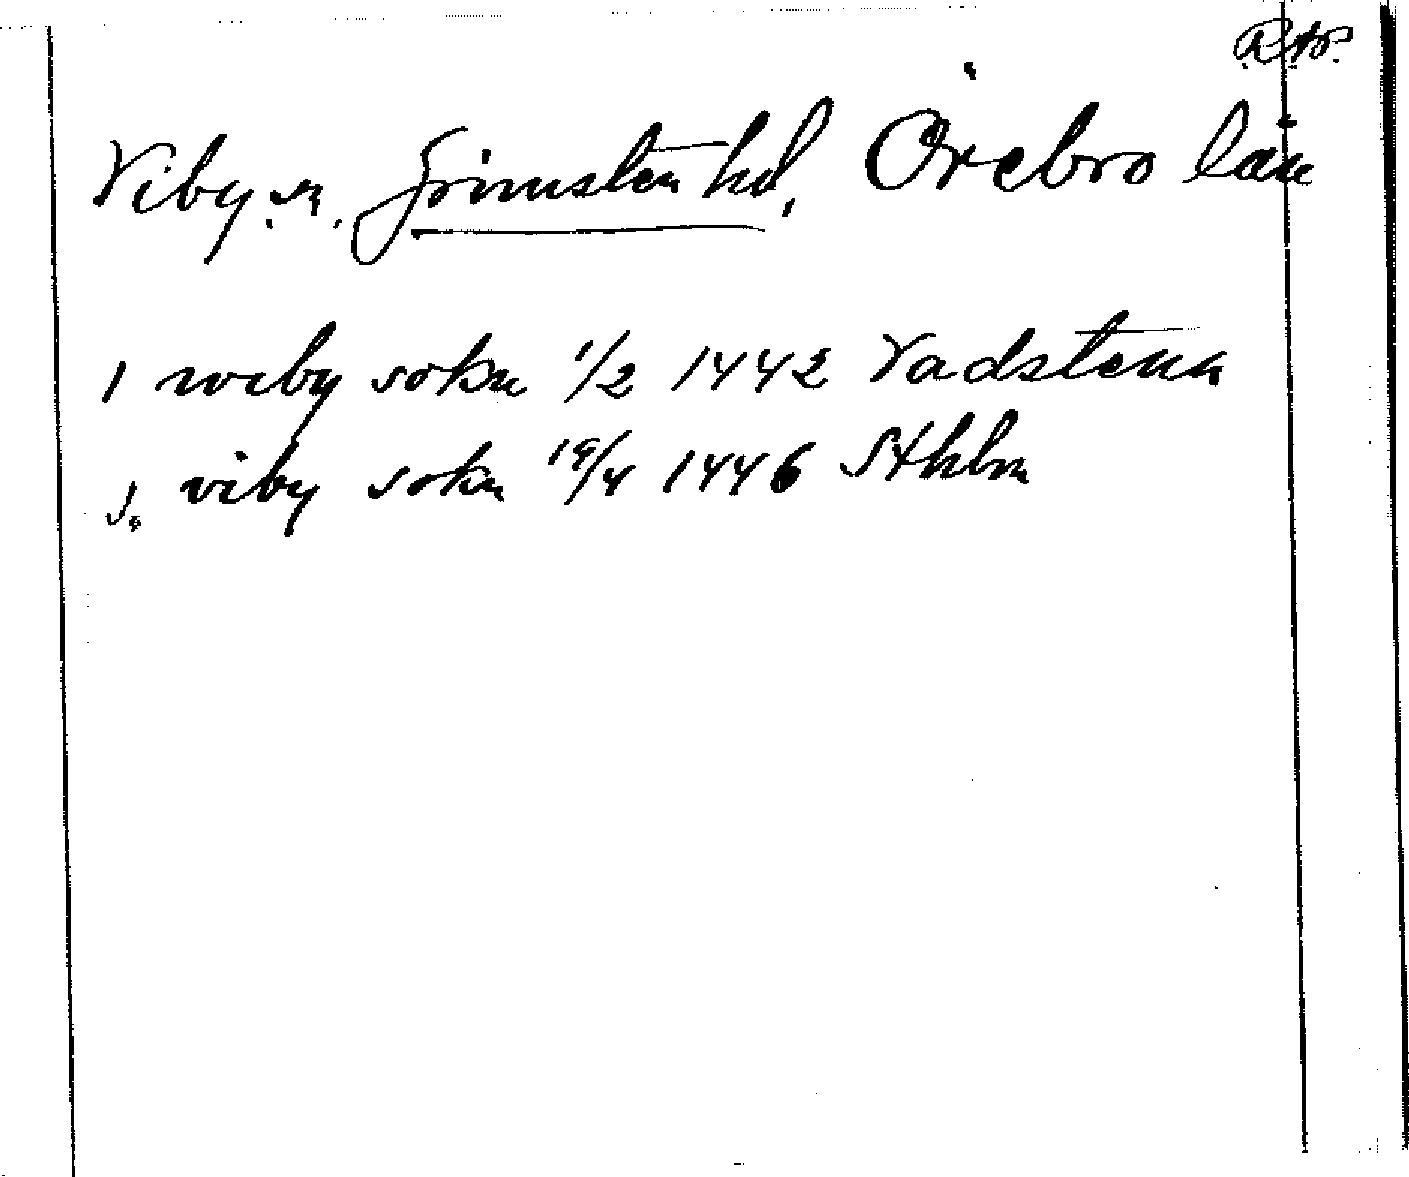 RAP.
Viby sn. Grimsten hd, Örebro län
I wiby sokn 1/2 1442 Vadstena
J. viby sokn 19/4 1446 Sthlm